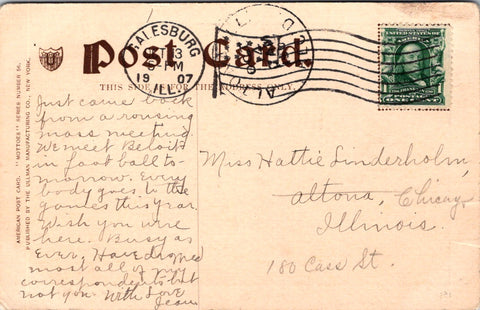 Post Card.
GALESBURG
19 07
ILL.
THIS SIDE IS FOR THE ADDRESS ONLY.
AMERICAN POST CARD. "MOTTOES" SERIES NUMBER 56.
PUBLISHED BY THE ULLMAN MANUFACTURING CO., NEW YORK.
Just came back
from a rousing
mass meeting.
We meet Beloit
in foot ball to-
morrow. Every
body goes to the
games this year.
Wish you were
here. Busy as
ever. Have dropped
most all of my
correspondents but
not you. With Love
Miss Hattie Linderholm,
Altona, Chicago
Illinois.
180 Cass St.